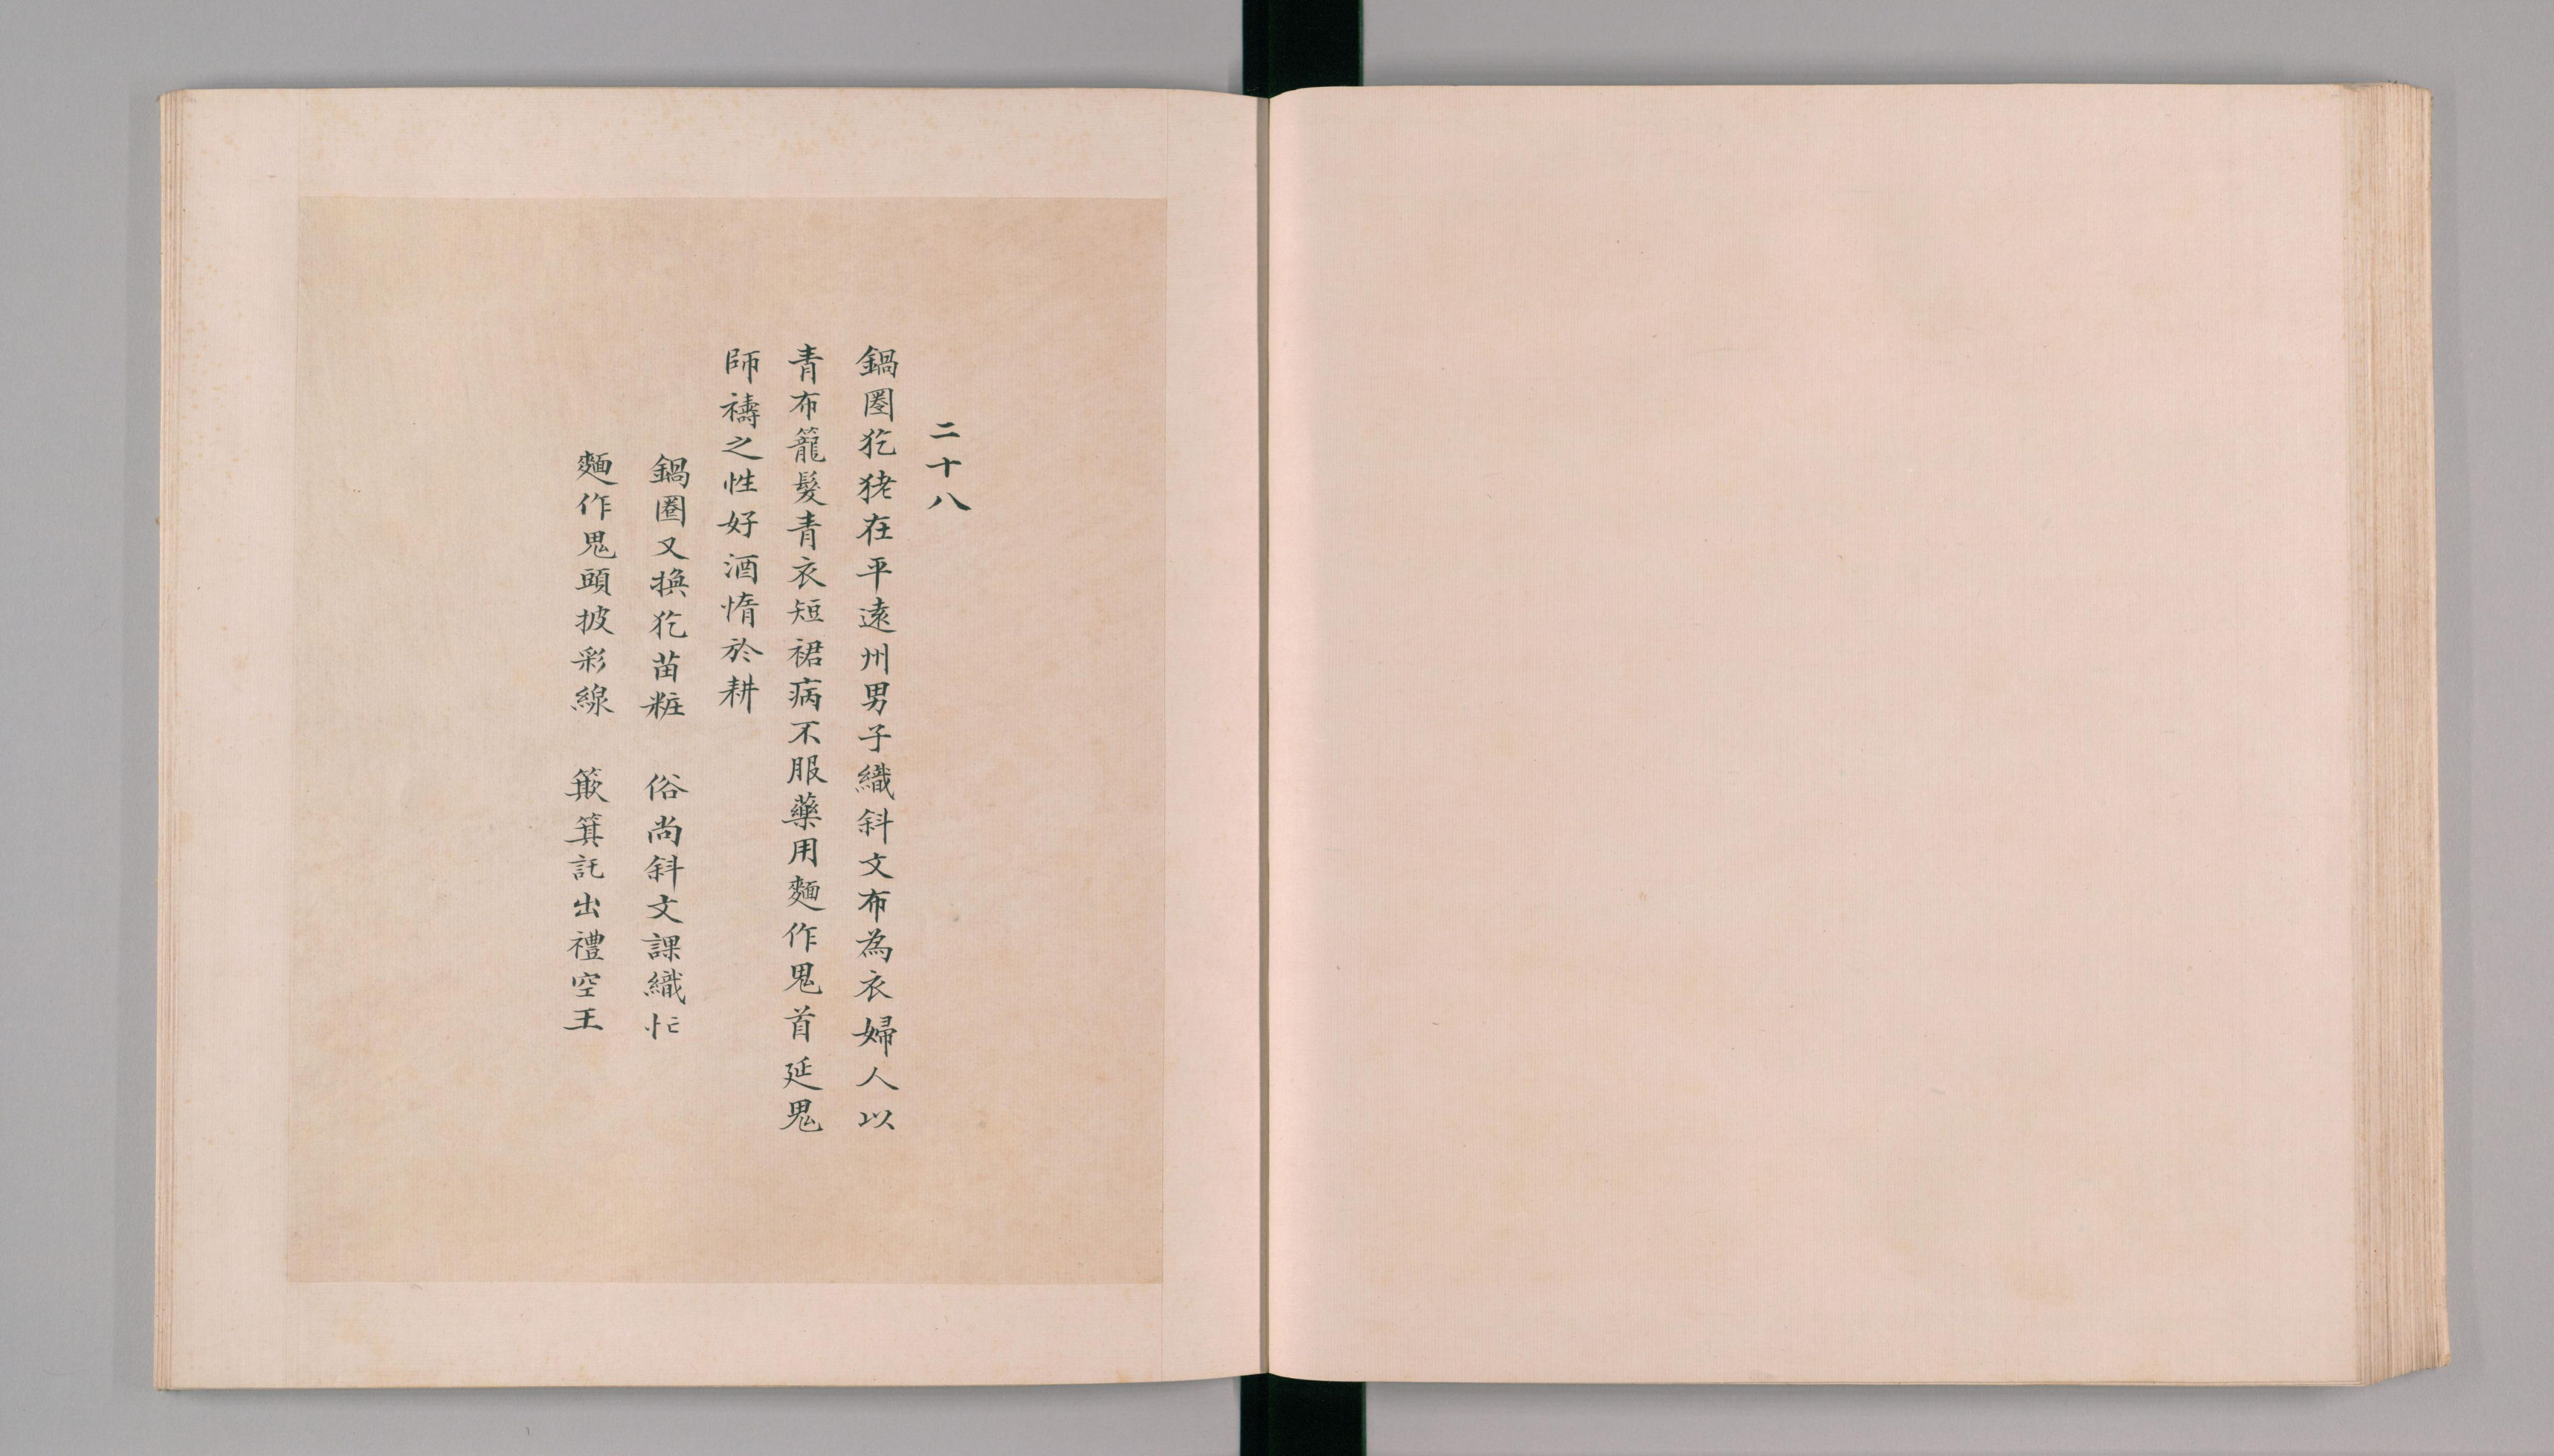 二十八
鍋圈犵狫在平遠州男子織斜文布為衣婦人以
青布籠髮青衣短裙病不服藥用麵作鬼首延鬼
師禱之性好酒惰於耕
鍋圈又換犵苗粧　俗尚斜文課織忙
麵作鬼頭披彩線　簸箕託出禮空王